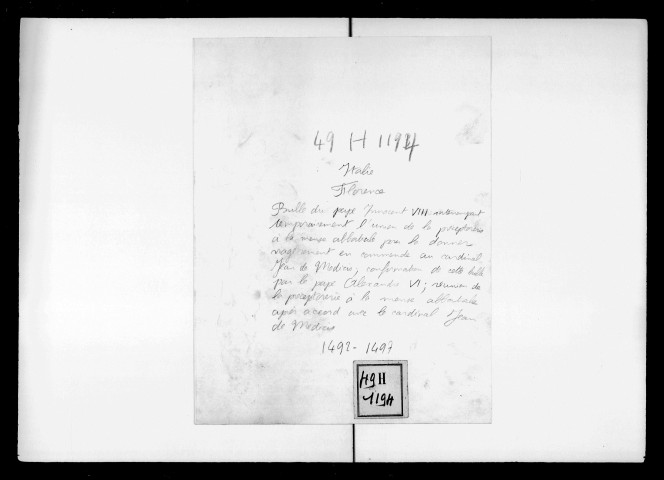 49 H 1194
Italie
Florence
Bulle du pape Innocent VIII interrompant
temporairement l'union de la préceptorerie
à la mense abbatiale pour la donner
viagèrement en commende au cardinal
Jean de Medicis; confirmation de cette bulle
par le pape Alexandre VI; réunion de
la préceptorerie à la mense abbatiale
après accord avec le cardinal Jean
de Medicis
1492-1497
49 H
1194